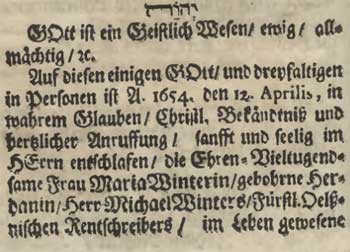 יהוה
GOtt ist ein Geistlich Wesen/ ewig/ all-
mächtig/ ꝛc.
Auf diesen einigen GOtt/ und dreyfaltigen
in Personen ist A. 1654. den 12. Aprilis, in
wahrem Glauben/ Christl. Bekändtniß und
hertzlicher Anruffung/ sanfft und seelig im
HErrn entschlafen/ die Ehren-Vieltugend-
same Frau Maria Winterin/ gebohrne Her-
danin/ Herr Michael Winters/ Fürstl. Oelß-
nischen Rentschreibers/ im Leben gewesene